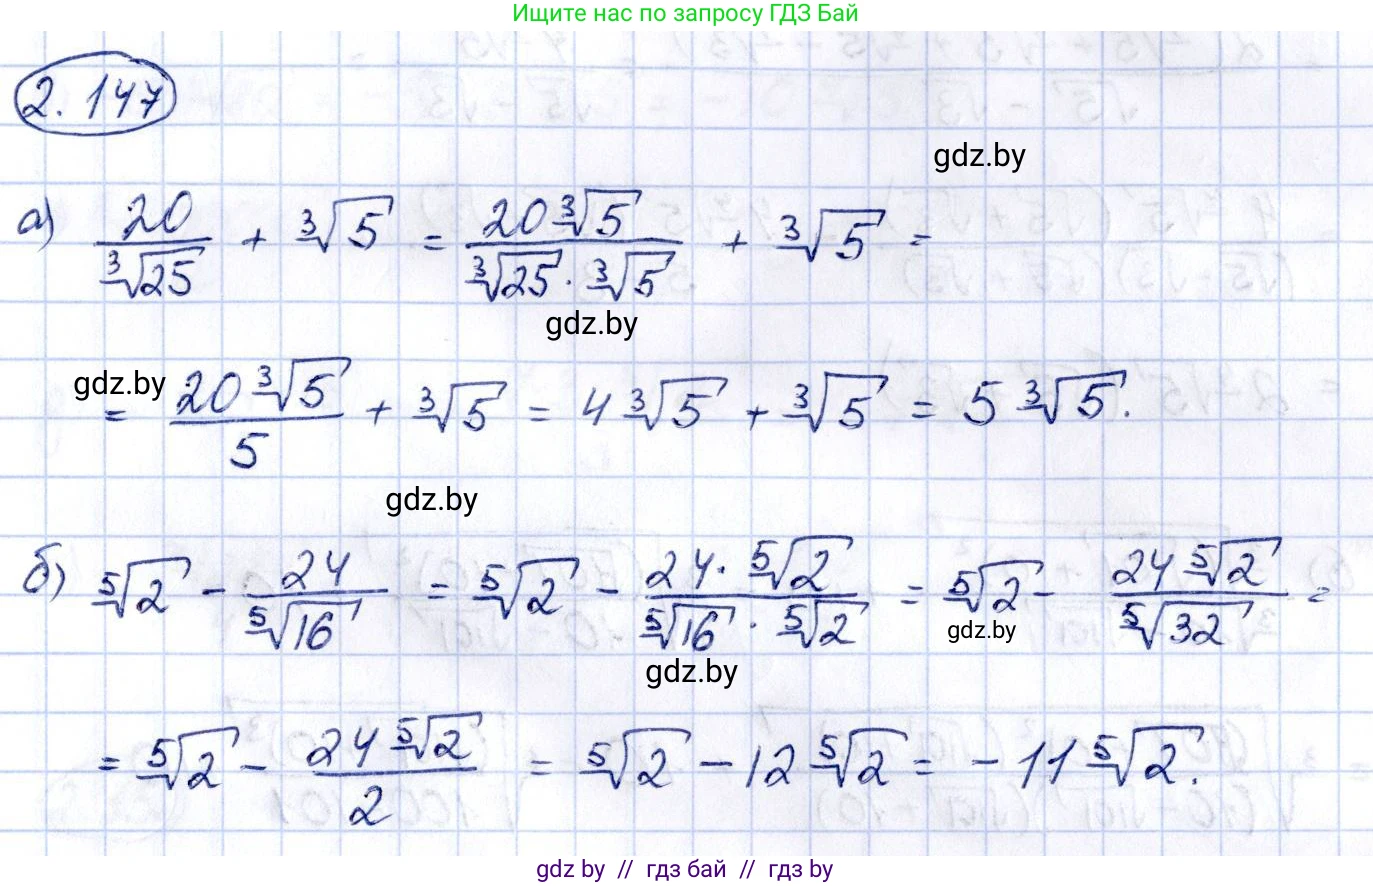 Ищите нас по запросу ГДЗ Бай
2.147
gdz.by
а) 20/∛25 + ∛5 = 20∛5/(∛25 · ∛5) + ∛5 =
gdz.by
gdz.by
= 20∛5/5 + ∛5 = 4∛5 + ∛5 = 5∛5.
gdz.by
б) ⁵√2 - 24/⁵√16 = ⁵√2 - 24 · ⁵√2/(⁵√16 · ⁵√2) = ⁵√2 - 24⁵√2/⁵√32 =
gdz.by
gdz.by
= ⁵√2 - 24⁵√2/2 = ⁵√2 - 12⁵√2 = -11⁵√2.
gdz by // гдз бай // гдз by